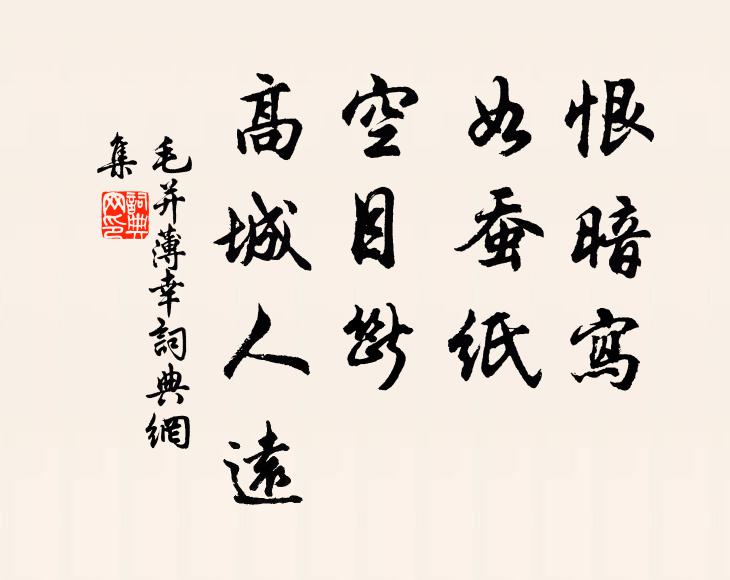 恨暗寫
如蚕紙
空目斷
髙城人遠
毛并薄幸詞典網
集
詞典
网印